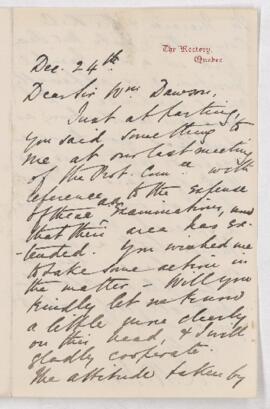 The Rectory,
Quebec
Dec. 24th
Dear Sir Wm Dawson,
Just at parting,
you said something to
me at our last meeting
of the Prot. Com. with
reference to the expense
of these examinations, now
that their area has ex-
tended. You wished me
to take some action in
the matter. Will you
kindly let me know
a little more clearly
on this head, & I will
gladly cooperate.
The attitude taken by